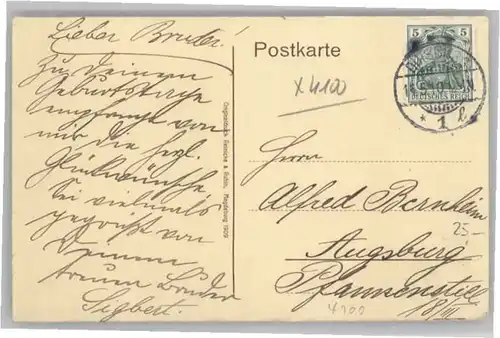 Lieber Bruder!
Zu Deinem
Geburtstage
empfange von
mir die herzl.
Glückwünsche.
Sei vielmals
gegrüsst von
Deinem
treuen Bruder
Sigbert.
Postkarte
x4100
5 5
DEUTSCHES REICH
* 1 l *
Herrn
Alfred Bernheim
25-
Augsburg
Pfannenstiel
18/III
x100